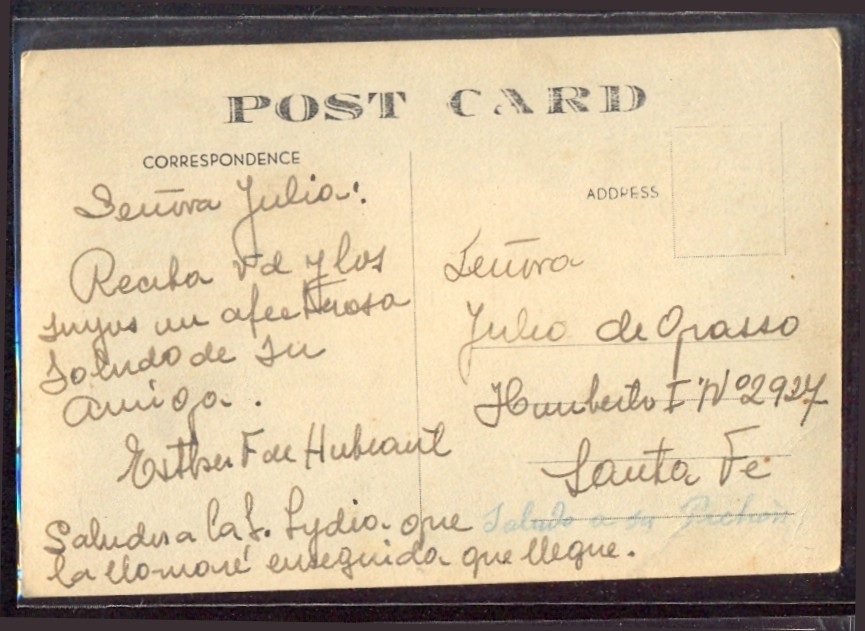 POST CARD
CORRESPONDENCE
Señora Julia:
Reciba Vd y los
suyos un afectuosa
Saludo de su
amiga.
Esther F de
Saludos a la S. Lydia que
la llamaré enseguida que llegue.
ADDRESS
Señora
Julia de Opasso
Humberto I Nº 2927
Santa Fe
Saludo a su